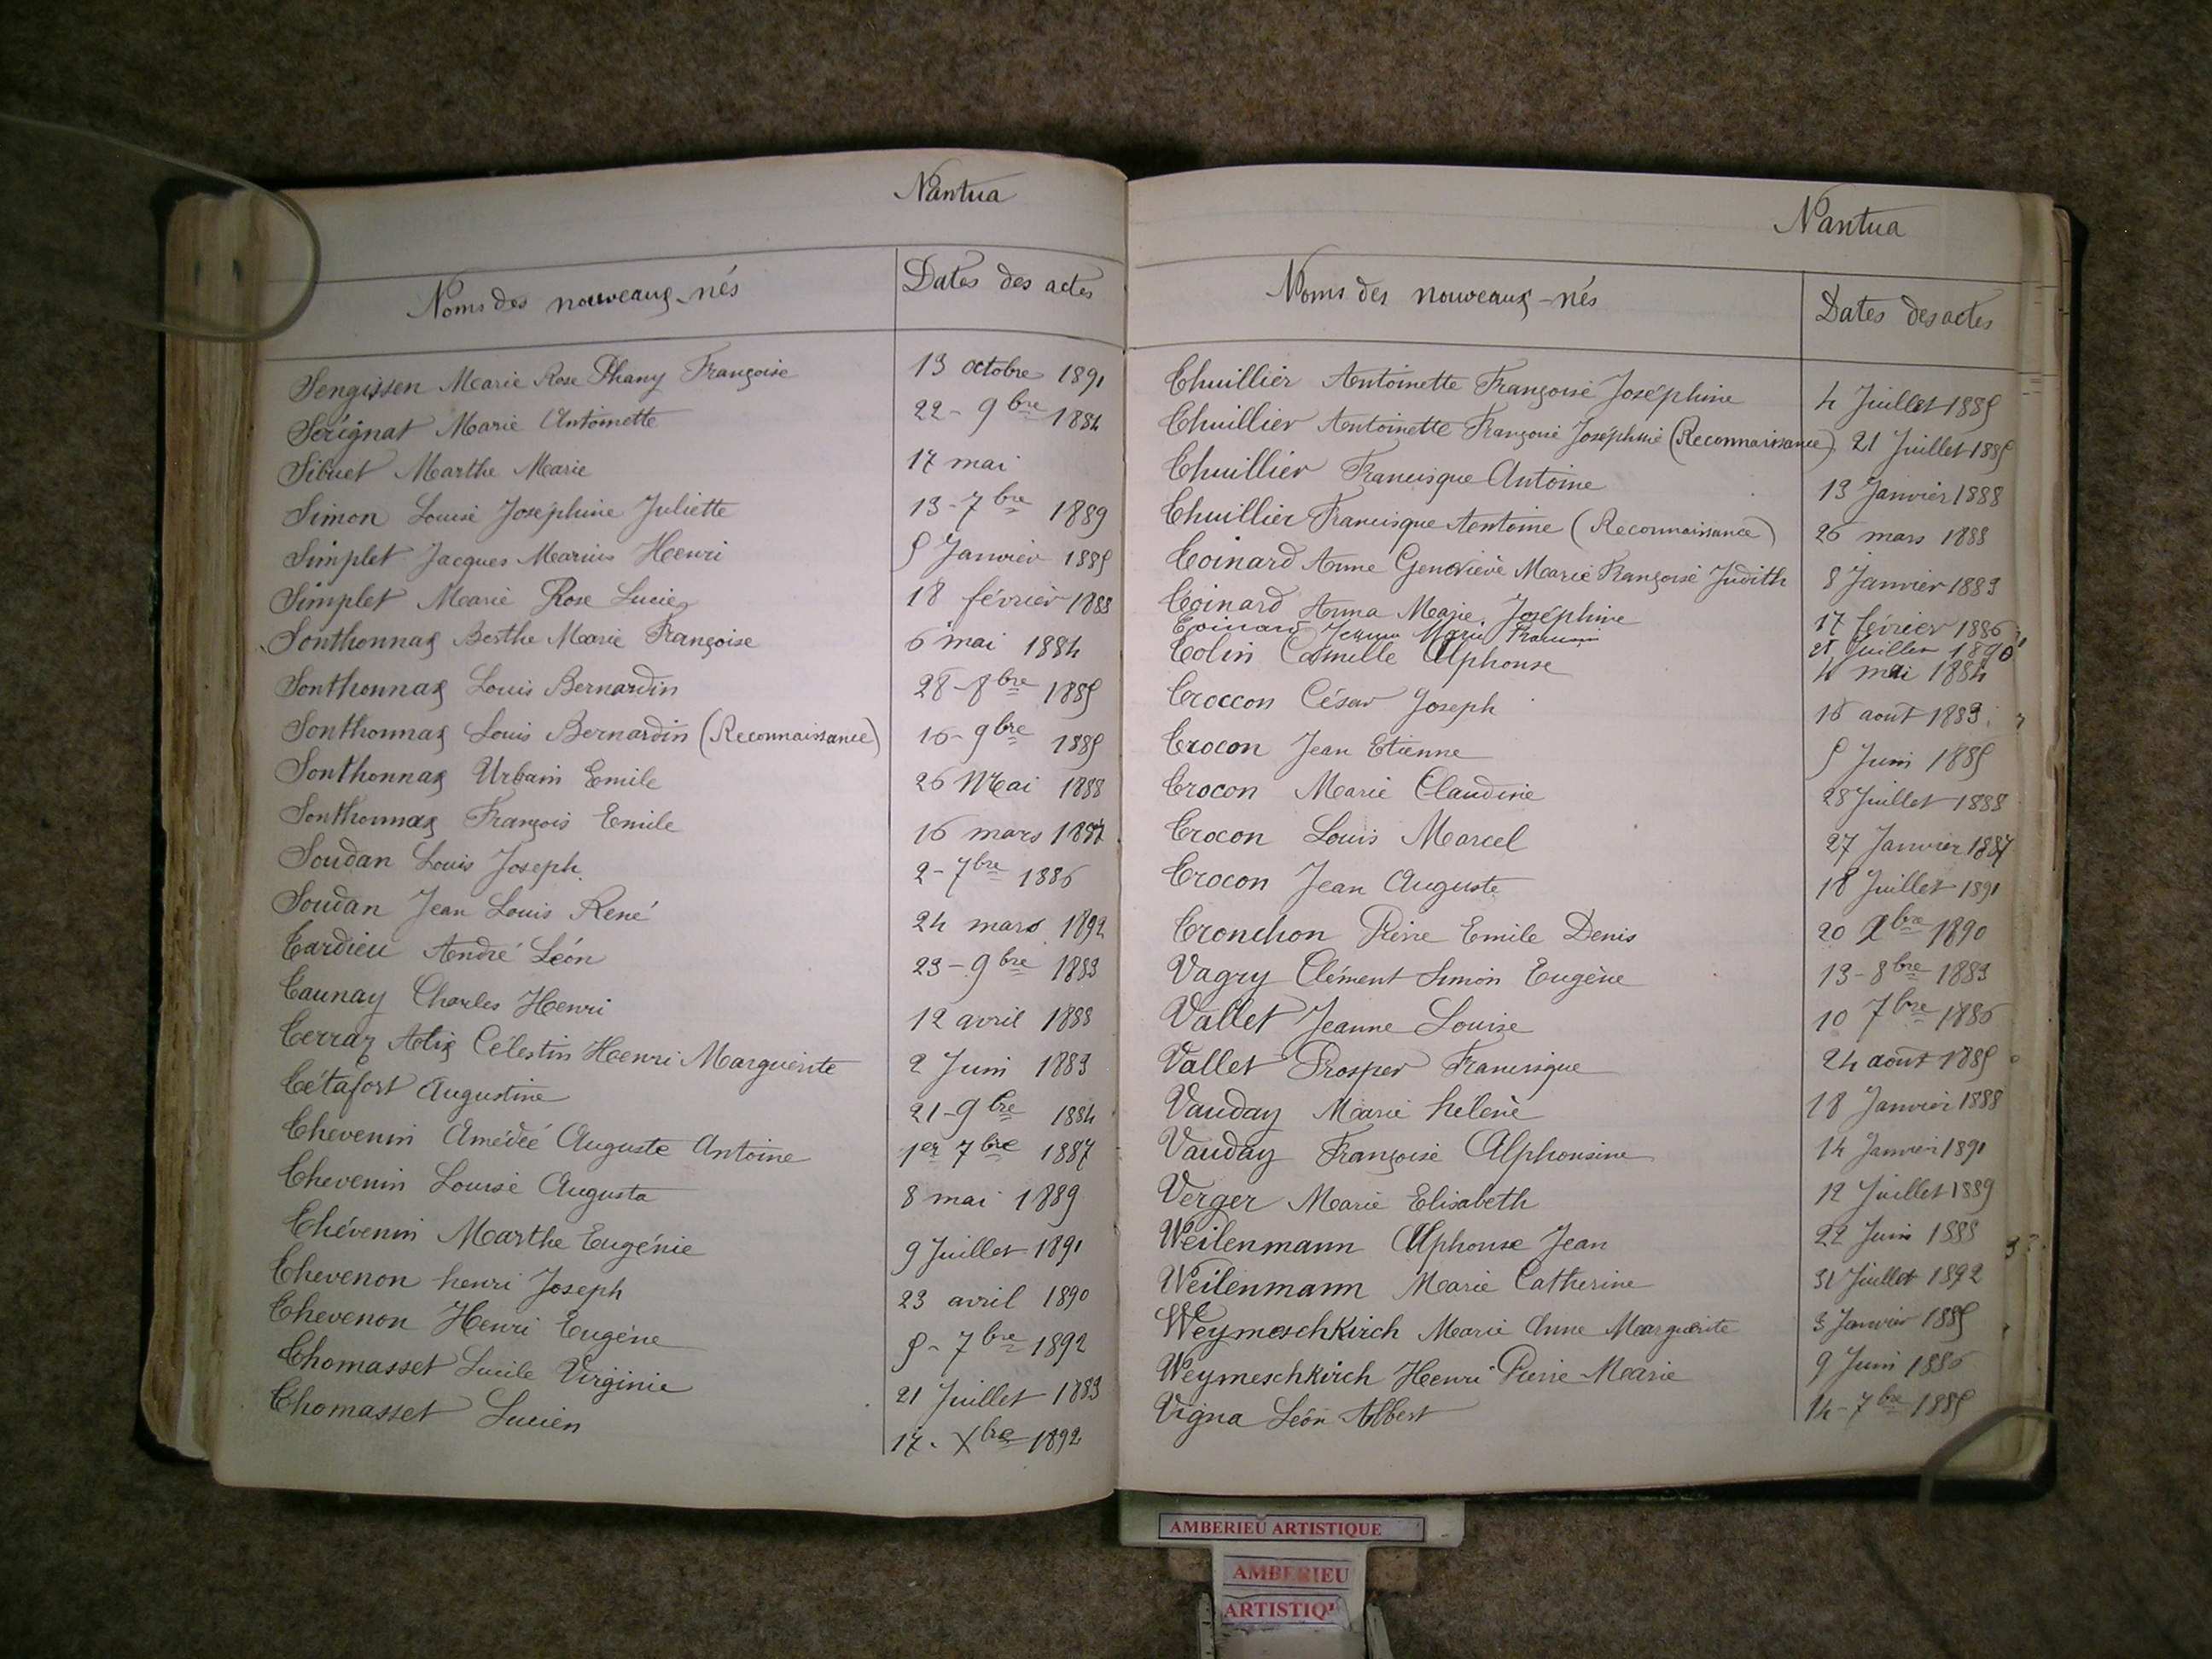 Nantua
Noms des nouveaux-nés Dates des actes
Sengissen Marie Rose Phany Françoise 13 octobre 1891
Sérignat Marie Antoinette 22-9bre 1884
Sibuet Marthe Marie 17 mai
Simon Louise Joséphine Juliette 13-7bre 1889
Simplet Jacques Marius Henri 5 Janvier 1885
Simplet Marie Rose Lucie 18 février 1888
Sonthonnax Berthe Marie Françoise 6 mai 1884
Sonthonnax Louis Bernardin 28-8bre 1885
Sonthonnax Louis Bernardin (Reconnaissance) 16-9bre 1885
Sonthonnax Urbain Emile 26 Mai 1888
Sonthonnax François Emile 16 mars 1887
Soudan Louis Joseph 2-7bre 1886
Soudan Jean Louis René 24 mars 1892
Tardieu André Léon 23-9bre 1883
Taunay Charles Henri 12 avril 1888
Terraz Alix Célestin Henri Marguerite 2 Juin 1883
Tétafort Augustine 21-9bre 1884
Thevenin Amédée Auguste Antoine 1er 7bre 1887
Thevenin Louise Augusta 8 mai 1889
Thévenin Marthe Eugénie 9 Juillet 1891
Thevenon henri Joseph 23 avril 1890
Thevenon Henri Eugène 5-7bre 1892
Thomasset Lucile Virginie 21 Juillet 1883
Thomasset Lucien 17. Xbre 1892
Nantua
Noms des nouveaux-nés Dates des actes
Thuillier Antoinette Françoise Joséphine 4 Juillet 1885
Thuillier Antoinette Françoise Joséphine (Reconnaissance) 21 Juillet 1885
Thuillier Francisque Antoine 13 Janvier 1888
Thuillier Francisque Antoine (Reconnaissance) 26 mars 1888
Toinard Anne Geneviève Marie Françoise Judith 8 Janvier 1883
Toinard Anna Marie Joséphine 17 février 1886
Toinard Jeanne Marie 21 Juillet 1890
Tolin Camille Alphonse 4 mai 1884
Troccon César Joseph 16 aout 1883
Trocon Jean Etienne 5 Juin 1885
Trocon Marie Claudine 28 Juillet 1888
Trocon Louis Marcel 27 Janvier 1887
Trocon Jean Auguste 18 Juillet 1891
Tronchon Pierre Emile Denis 20 Xbre 1890
Vagry Clément Simon Eugène 13-8bre 1883
Vallet Jeanne Louise 10 7bre 1886
Vallet Prosper Francisque 24 août 1885
Vauday Marie hélène 18 Janvier 1888
Vauday Françoise Alphonsine 14 Janvier 1891
Verger Marie Elisabeth 12 Juillet 1889
Weilenmann Alphonse Jean 22 Juin 1888
Weilenmann Marie Catherine 31 Juillet 1892
Weymeschkirch Marie Anne Marguerite 3 Janvier 1885
Weymeschkirch Henri Pierre Marie 9 Juin 1886
Vigna Léon Albert 14-7bre 1885
AMBERIEU ARTISTIQUE
AMBERIEU
ARTISTIQU